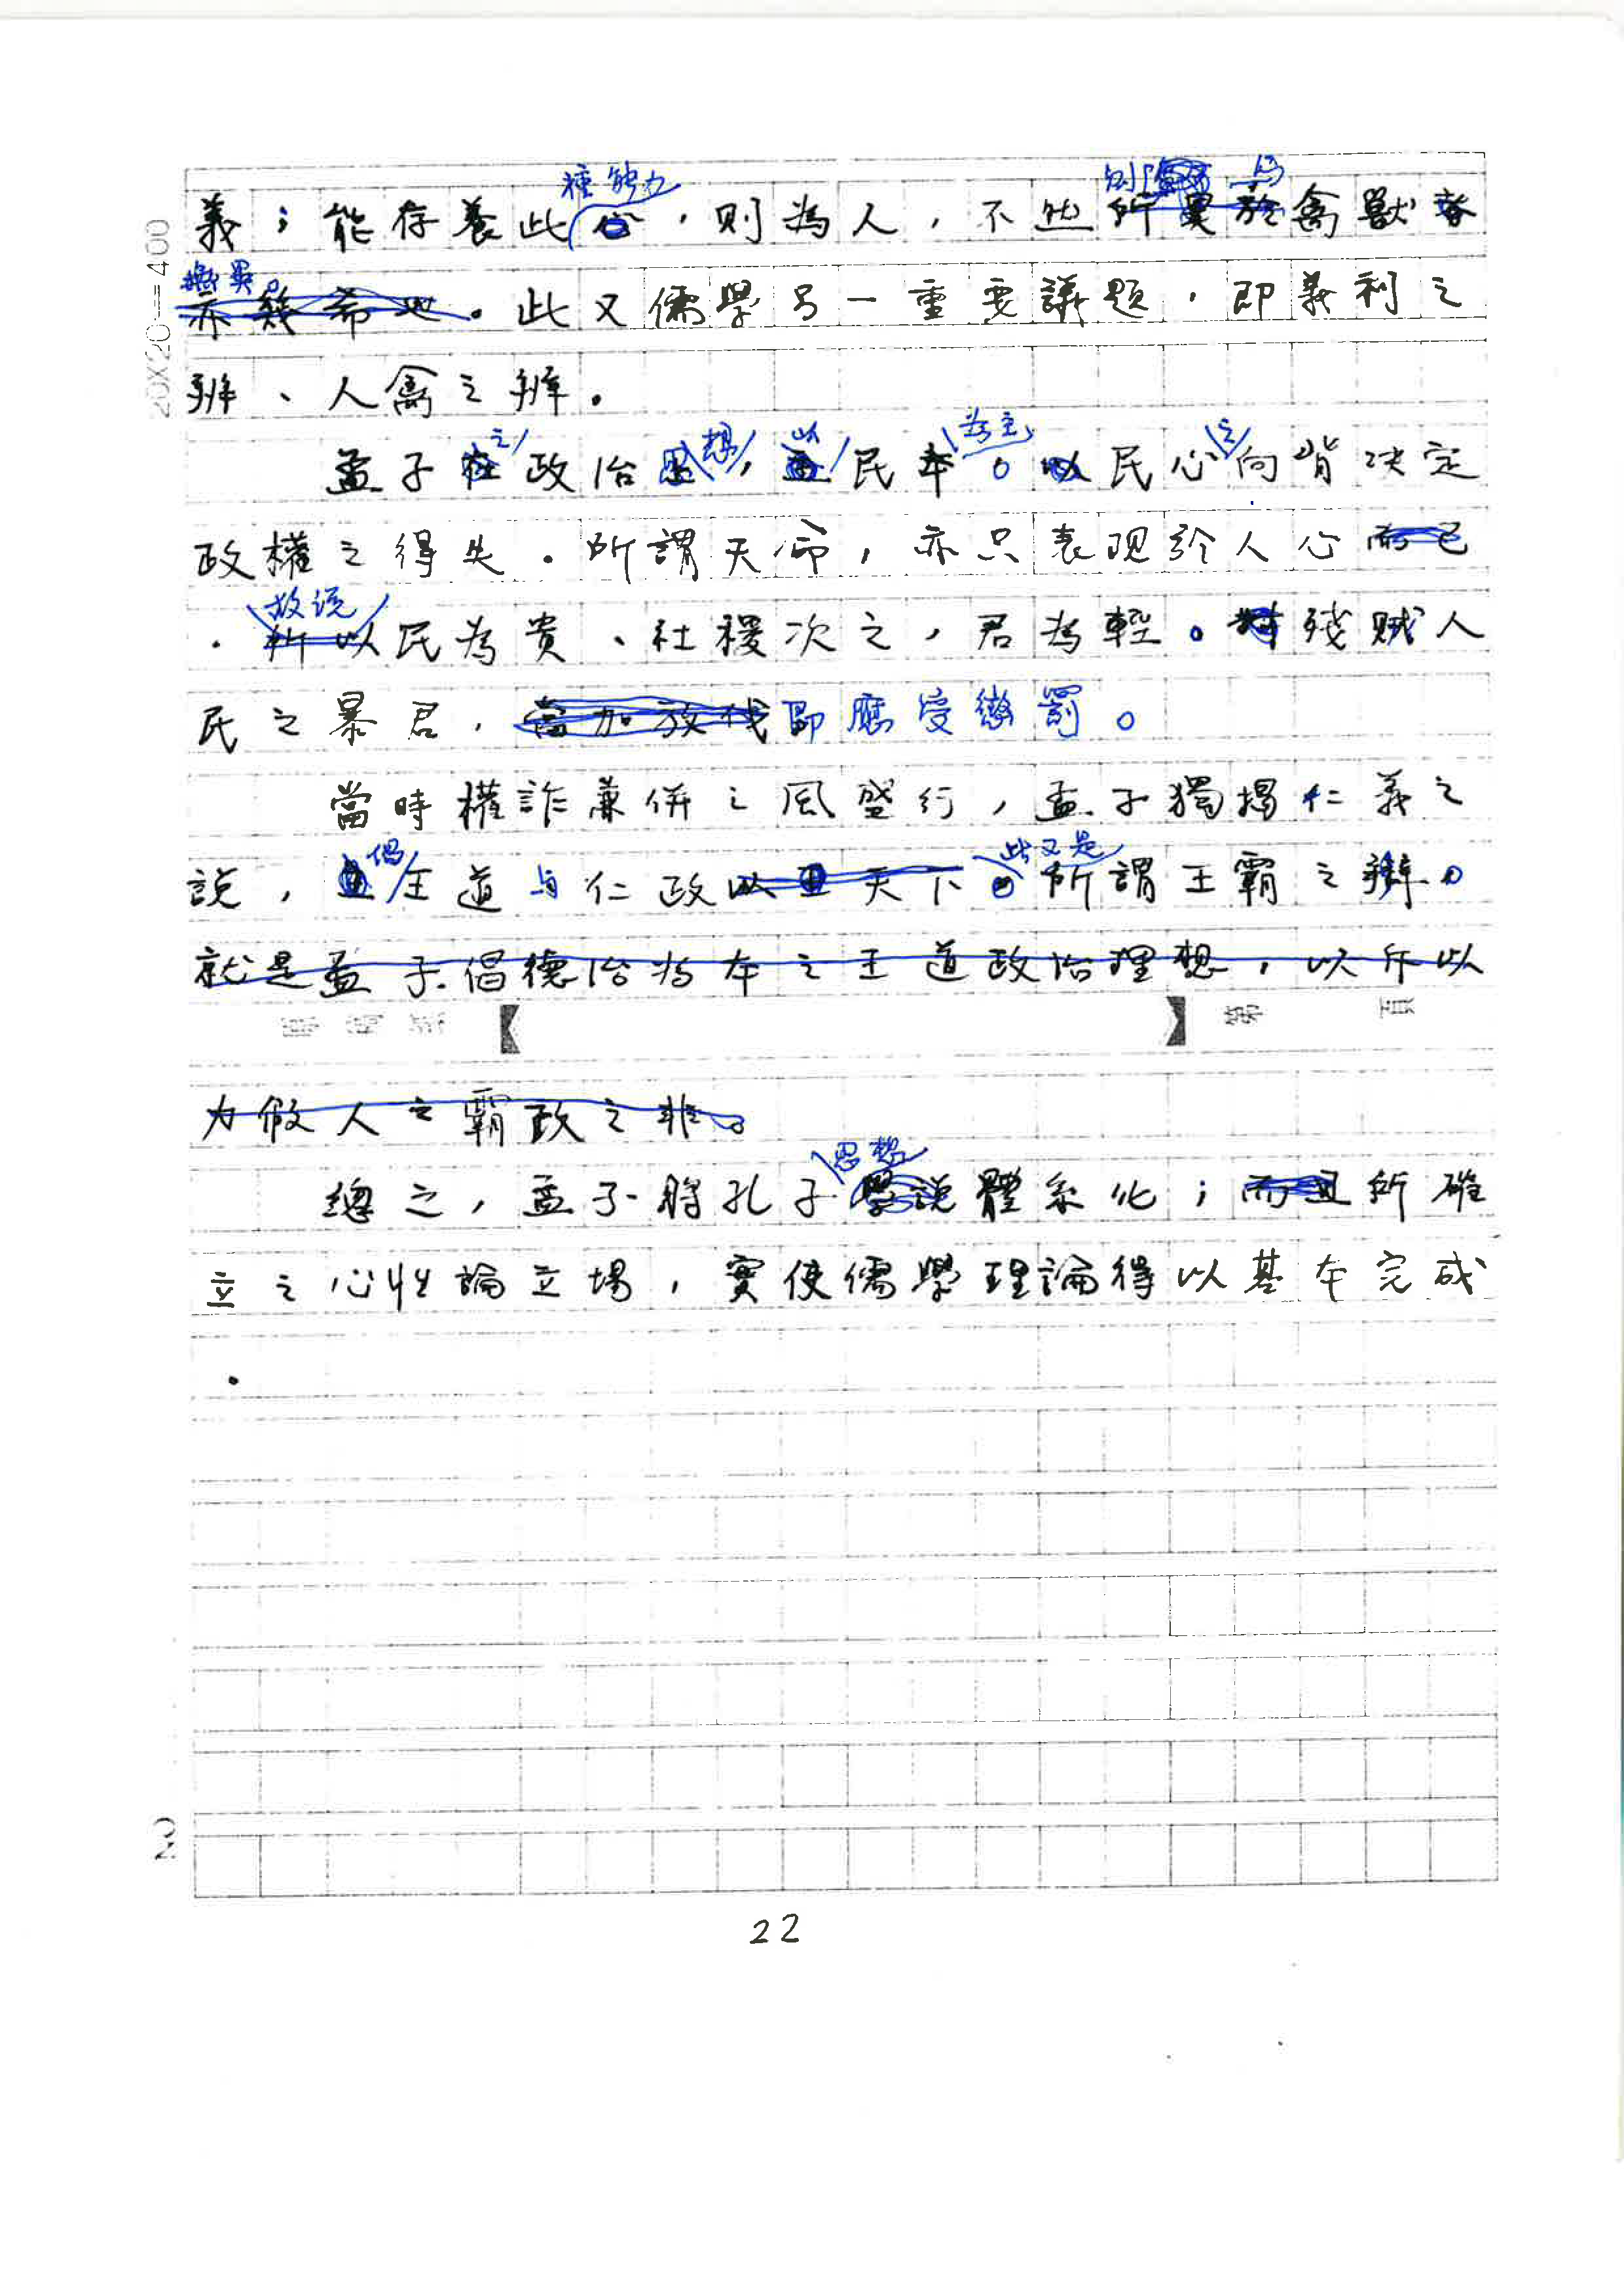 種能力 則 與
義；能存養此心，則為人，不然所異於禽獸者
無異。
亦幾希也。此又儒學另一重要議題，即義利之
辨、人禽之辨。
之 想 以 為主 之
孟子在政治，民本。以民心向背決定
政權之得失。所謂天命，亦只表現於人心而已
故說
。所以民為貴、社稷次之，君為輕。對殘賊人
民之暴君，當加放伐即應受懲罰。
當時權詐兼併之風盛行，孟子獨揭仁義之
倡 此又是
說，王道與仁政以王天下。所謂王霸之辨。
就是孟子倡德治為本之王道政治理想，以斥以
原稿紙 第 頁
力假人之霸政之非。
思想
總之，孟子將孔子學說體系化；而且所確
立之心性論立場，實使儒學理論得以基本完成
。
20X20=400
2
22